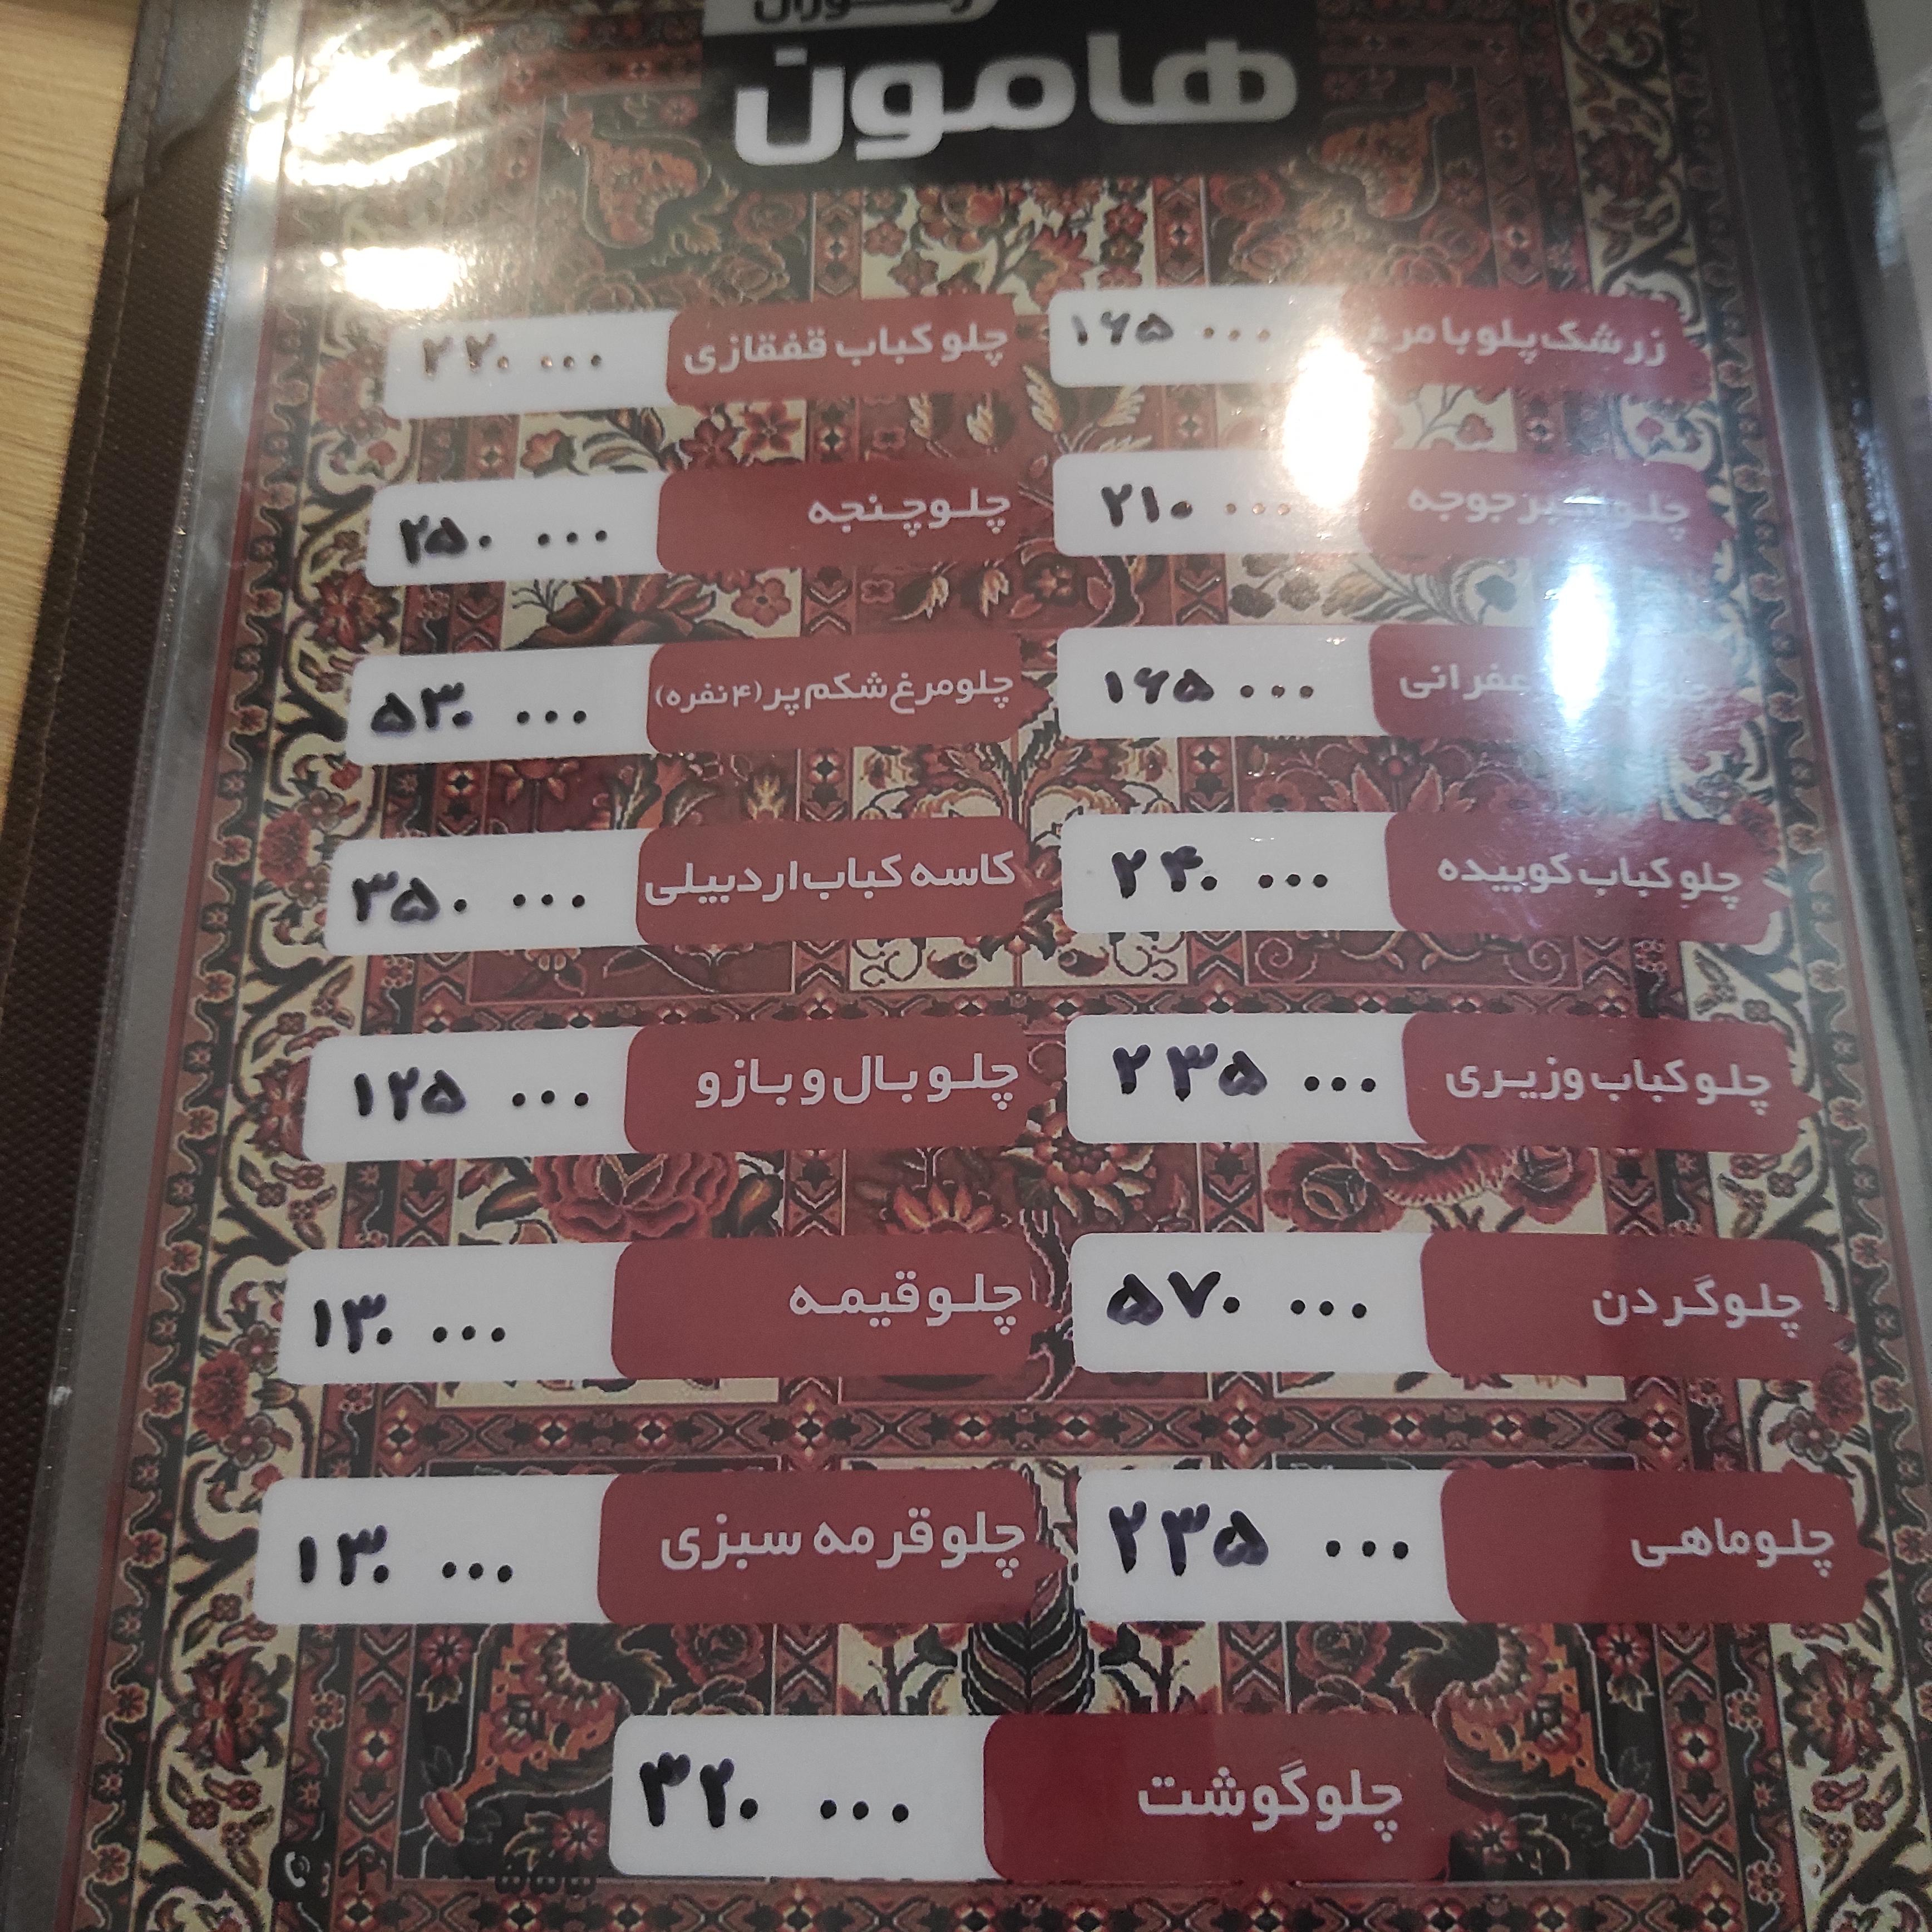 رستوران
هامون
زرشک پلو با مرغ ۱۶۵ ۰۰۰
چلو کباب قفقازی ۲۲۰ ۰۰۰
جوجه ۲۱۰ ۰۰۰
چلو چنجه ۲۵۰ ۰۰۰
۱۶۵ ۰۰۰
چلو مرغ شکم پر (۴ نفره) ۵۳۰ ۰۰۰
چلو کباب کوبیده ۲۴۰ ۰۰۰
کاسه کباب اردبیلی ۳۵۰ ۰۰۰
چلو کباب وزیری ۲۳۵ ۰۰۰
چلو بال و بازو ۱۲۵ ۰۰۰
چلو گردن ۵۷۰ ۰۰۰
چلو قیمه ۱۳۰ ۰۰۰
چلو ماهی ۲۳۵ ۰۰۰
چلو قرمه سبزی ۱۳۰ ۰۰۰
چلو گوشت ۳۲۰ ۰۰۰